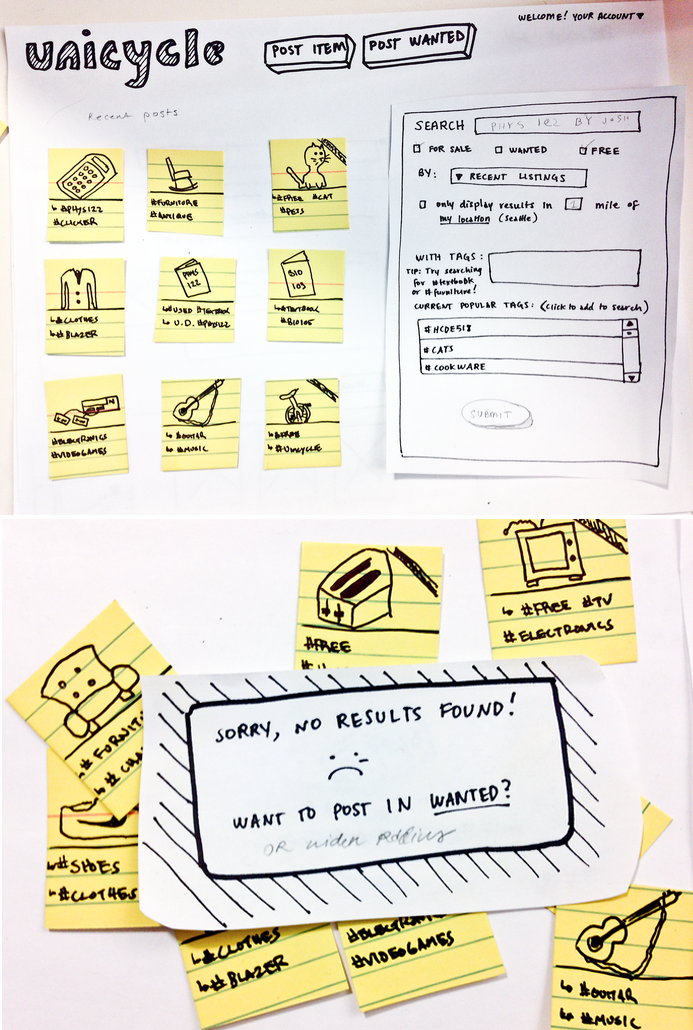 WELCOME! YOUR ACCOUNT ▼
unicycle
POST ITEM
POST WANTED
Recent posts
↳ #PHYS122
#CLICKER
#FURNITURE
#ANTIQUE
↳ #FREE #CAT
#PETS
↳ #CLOTHES
↳ #BLAZER
PHYS
122
↳ #USED #TEXTBOOK
↳ U.D. #PHYS122
BIO
103
↳ #TEXTBOOK
↳ #BIO105
#ELECTRONICS
#VIDEOGAMES
↳ #GUITAR
↳ #MUSIC
↳ #FREE
↳ #UNICYCLE
SEARCH PHYS 122 BY JOSH
FOR SALE WANTED FREE
BY: ▼ RECENT LISTINGS
only display results in 1 mile of
my location (seattle)
WITH TAGS:
TIP: Try searching
for #textbook
or #furniture!
CURRENT POPULAR TAGS: (click to add to search)
#HCDE518
#CATS
#COOKWARE
SUBMIT
#FREE
↳ #FREE #TV
#ELECTRONICS
↳ #FURNITU
↳ #CHA
↳ #SHOES
↳ #CLOTHES
SORRY, NO RESULTS FOUND!
WANT TO POST IN WANTED?
OR widen radius
↳ #CLOTHES
↳ #BLAZER
#ELECTRONICS
#VIDEOGAMES
↳ #GUITAR
↳ #MUSIC